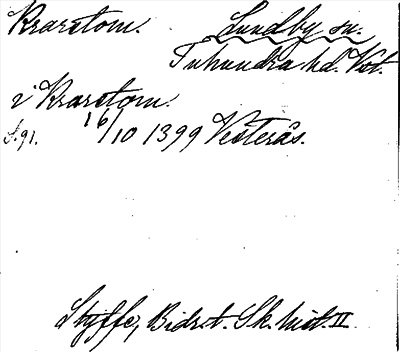 Krarstom. Lundby sn.
Tuhundra hd. Vstl.
i Krarstom.
S. 91. 16/10 1399 Vesterås.
Styffe, Bidr. t. Sk. hist. II